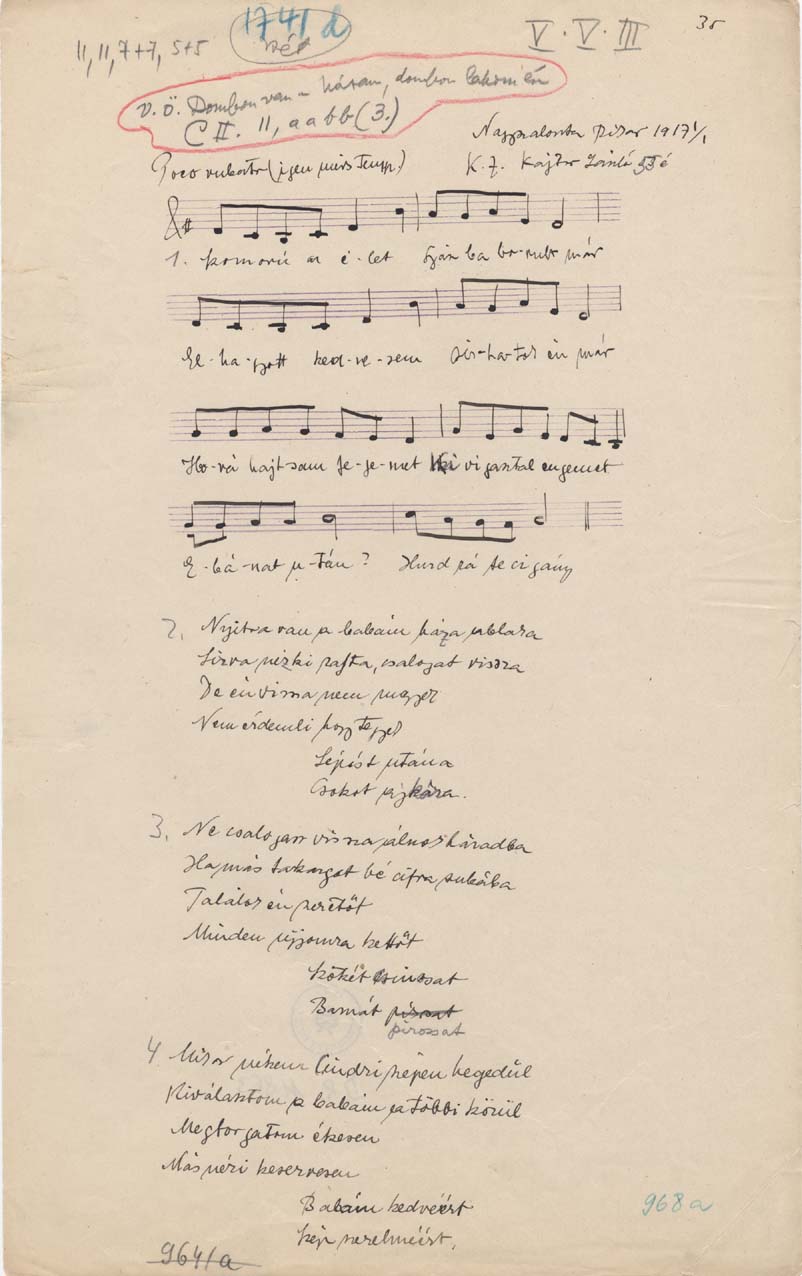 1741 d
V. V. III
35
11, 11, 7+7, 5+5
v. ö. Dombon van a házam, dombon lakom én
C II. 11, a a b b (3.)
Nagyszalonta 1917 1/1
Poco rubato (igen Temp.)
K. Z. Kajtor László
1. Komorú az é-let Gyász ba bo-rult már
El-ha-gyott ked-ve-sem Sir-ha-tok én már
Ho-vá hajt-sam fe-je-met Ki vigasztal engemet
E-bá-nat u-tán? Huzd rá te cigány
2. Nyitva van a babám háza ablaka
Sirva nézki rajta, csalogat vissza
De én vissza nem megyek
Nem érdemli hogy tegyek
Lépést utána
Csókot ajkára.
3. Ne csalogass vissza álnok házadba
Ha más takargat bé cifra subába
Találok én szeretőt
Minden ujjomra kettőt
Szőkét csinosat
Barnát pirossat
pirossat
4 Mikor nékem Cindri szépen hegedül
Kiválasztom a babám a többi közül
Megforgatom ékesen
Más nézi keservesen
Babám kedvéért
Szép szerelméért,
968 a
964/a